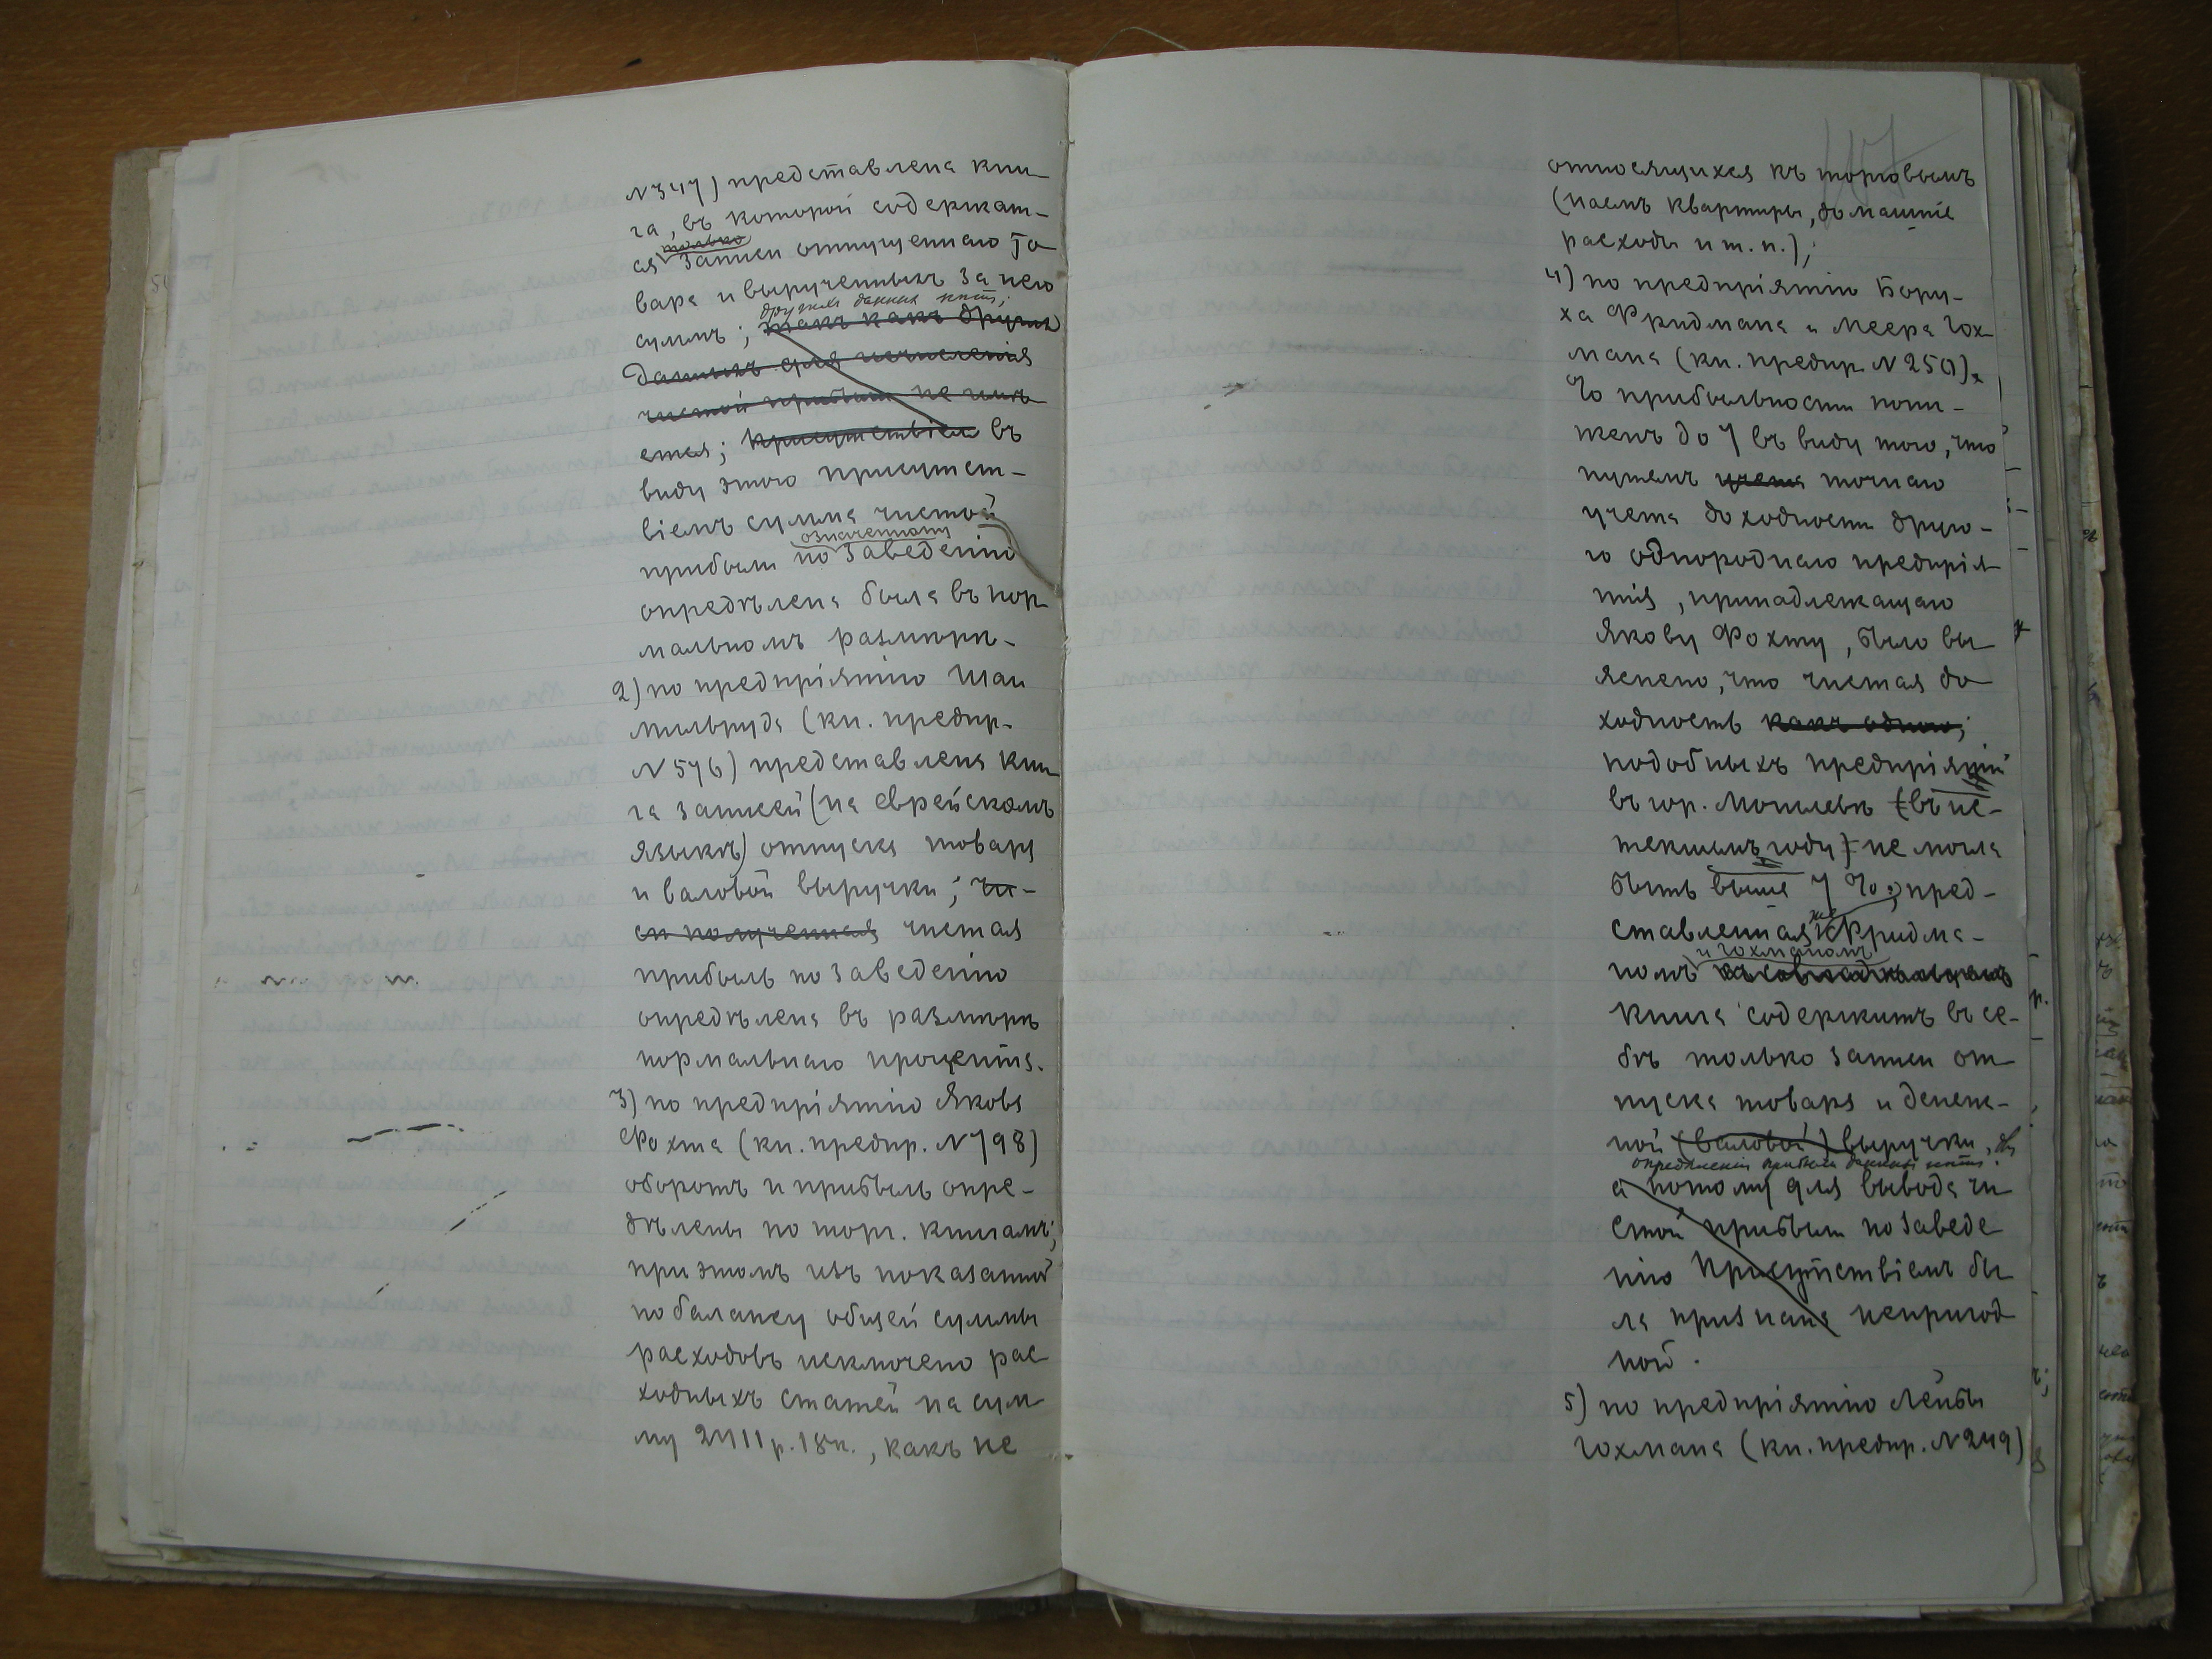 N347) представлена кни-
га, въ которой содержат-
только
ся записи отпущеннаго то-
вара и вырученныхъ за него
другихъ данныхъ нѣтъ;
суммъ; такъ какъ другихъ
данныхъ для исчисленія
чистой прибыли не имѣ-
ется; присутствіемъ въ
виду этого присутст-
віемъ сумма чистой
означенному
прибыли по заведенію
опредѣлена была въ нор-
мальномъ размѣрѣ.
2) по предпріятію Шан
мильруда (кн. предпр.
N576) представлена кни-
га записей (на еврейскомъ
языкѣ) отпуска товара
и валовой выручки; чи-
сто полученная чистая
прибыль по заведенію
опредѣлена въ размѣрѣ
нормальнаго процента.
3) по предпріятію Якова
Фохта (кн. предпр. N798)
оборотъ и прибыль опре-
дѣлены по торг. книгамъ;
при этомъ изъ показанной
по балансу общей суммы
расходовъ исключено рас-
ходныхъ статей на сум-
му 2711 р. 18 к., какъ не
относящихся къ торговымъ
(наемъ квартиры, домашніе
расходы и т. п.);
4) по предпріятію Бору-
ха Фридмана и Меера Гох-
мана (кн. предпр. N250).
% прибыльности пони-
женъ до 7 въ виду того, что
путемъ учета точнаго
учета доходности друго-
го однороднаго предпрія-
тія, принадлежащаго
Якову Фохту, было вы-
яснено, что чистая до-
ходность какъ одного;
подобныхъ предпріятій
въ гор. Могилевѣ (въ ис-
текшемъ году) не могла
быть выше 7 %; пред-
же
ставленная Фридма-
и Гохманомъ
номъ
книга содержитъ въ се-
бѣ только записи от-
пуска товара и денеж-
ной (валовой) выручки, для
опредѣленія прибыли данныхъ нѣтъ.
а потому для вывода чи-
стой прибыли по заведе-
нію Присутствіемъ бы-
ла признана непригод-
ной.
5) по предпріятію Лейбы
Гохмана (кн. предпр. N249)